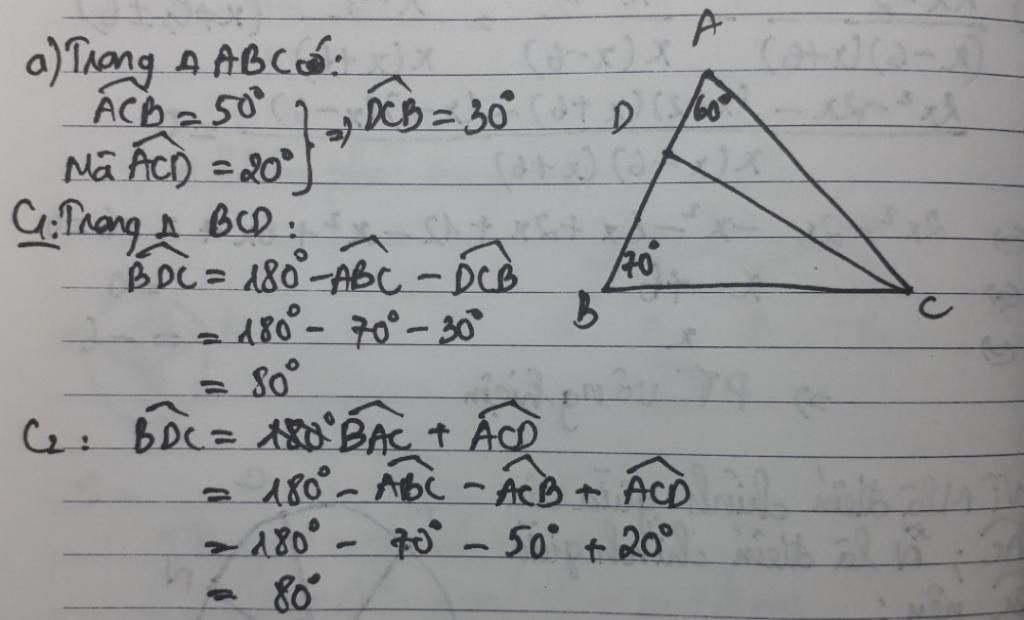 a) Trong Δ ABC có:
ACB = 50°
Mà ACD = 20°
=> DCB = 30°
C1: Trong Δ BCD:
BDC = 180° - ABC - DCB
= 180° - 70° - 30°
= 80°
C2: BDC = BAC + ACD
= 180° - ABC - ACB + ACD
= 180° - 70° - 50° + 20°
= 80°
A
D
60°
70°
B
C